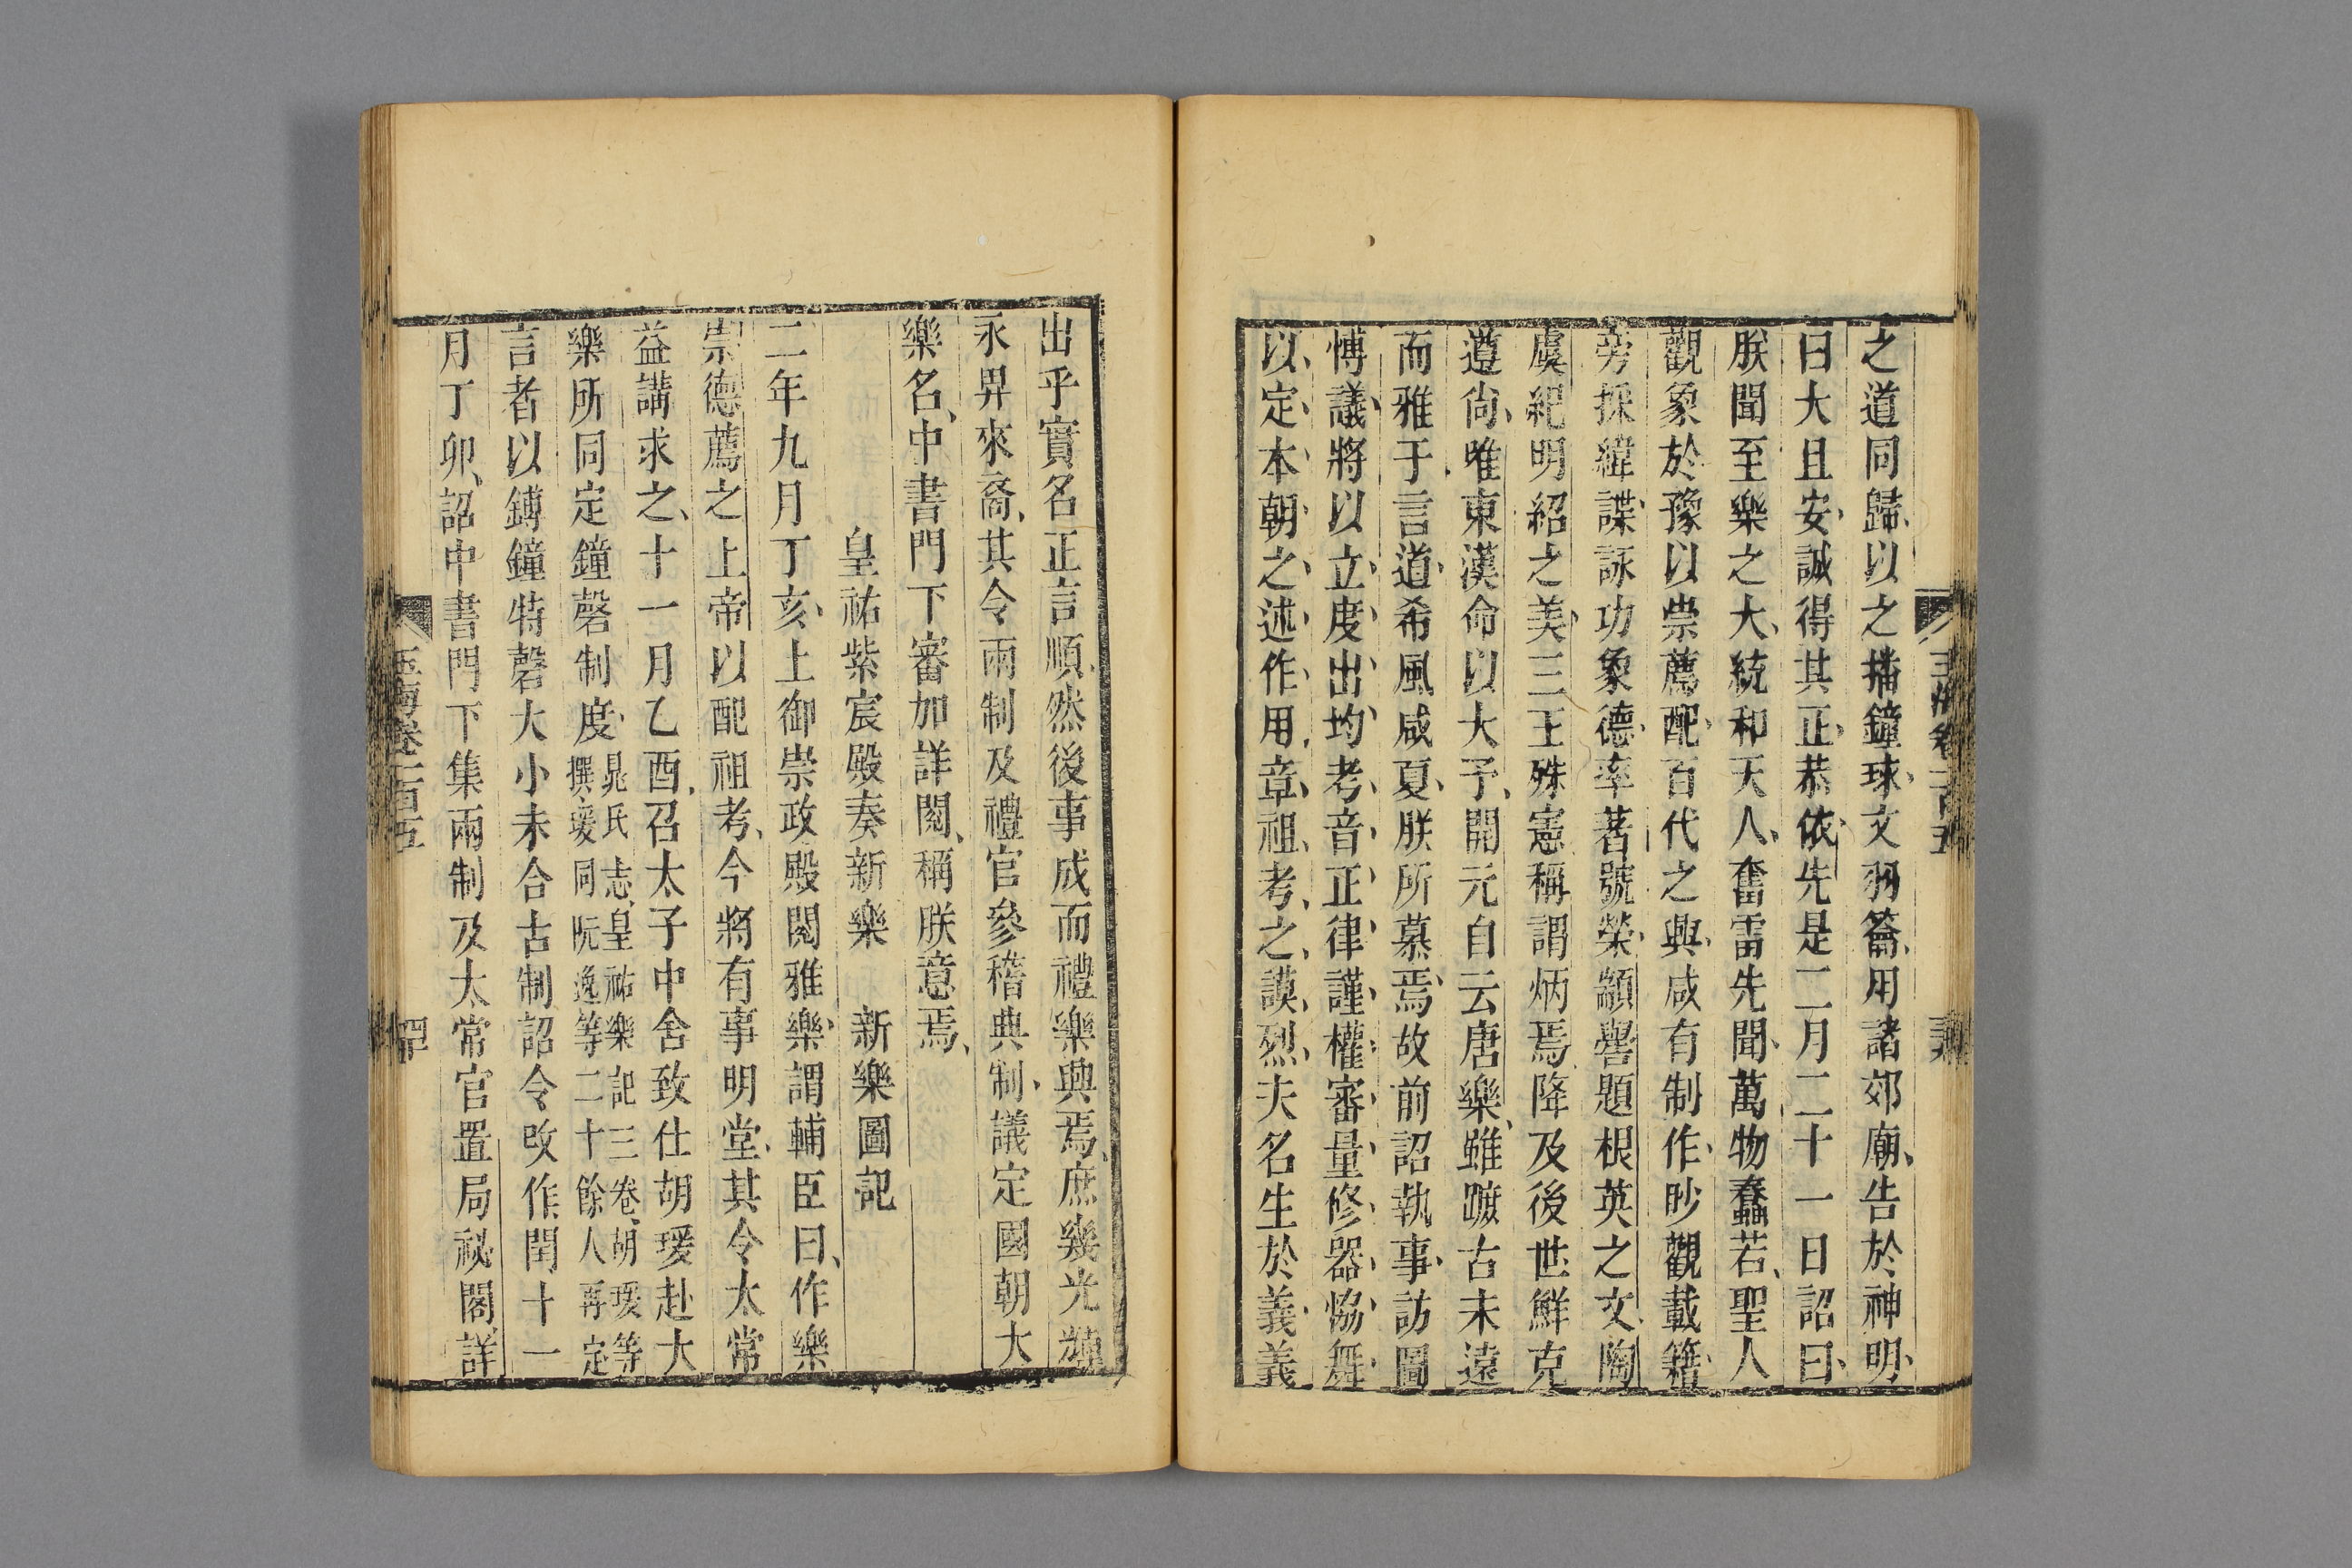 之道同歸、以之播鐘球、文羽籥、用諸郊廟、告於神明、
曰大且安、誠得其正、恭依、先是二月二十一日詔曰、
朕聞至樂之大、統和天人、奮雷先聞、萬物蠢若、聖人
觀象於豫以崇薦配、百代之興、咸有制作、眇觀載籍、
旁採緯諜、詠功象德、率著號榮、顓嚳題根英之文、陶
虞紀明紹之美、三王殊憲稱謂炳焉、降及後世鮮克
遵尙、唯東漢命以大予、開元自云唐樂、雖蹠古未遠
而雅于言道、希風咸夏、朕所慕焉、故前詔執事、訪圖
愽議、將以立度出均、考音正律、謹權審量、修器恊舞、
以定本朝之述作、用章祖考之謨烈、夫名生於義、義
出乎實、名正言順、然後事成而禮樂興焉、庶幾光
永畀來裔、其令兩制及禮官參稽典制、議定國朝大
樂名、中書門下審加詳閱、稱朕意焉、
皇祐紫宸殿奏新樂　新樂圖記
二年九月丁亥、上御崇政殿閱雅樂、謂輔臣曰、作樂
崇德薦之上帝以配祖考、今將有事明堂、其令太常
益講求之、十一月乙酉、召太子中舍致仕胡瑗赴大
樂所同定鐘磬制度、晁氏志、皇祐樂記三卷、胡瑗等
撰、瑗同阮逸等二十餘人再定
言者以鎛鐘特磬大小未合古制詔令改作閏十一
月丁卯、詔中書門下集兩制及太常官置局祕閣詳
玉海卷一百五
四